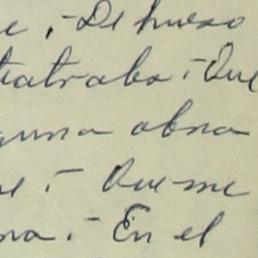 e ,- De hueso
teatrabo ;- Que
guna obra
ue ;- Que me
na .- En el